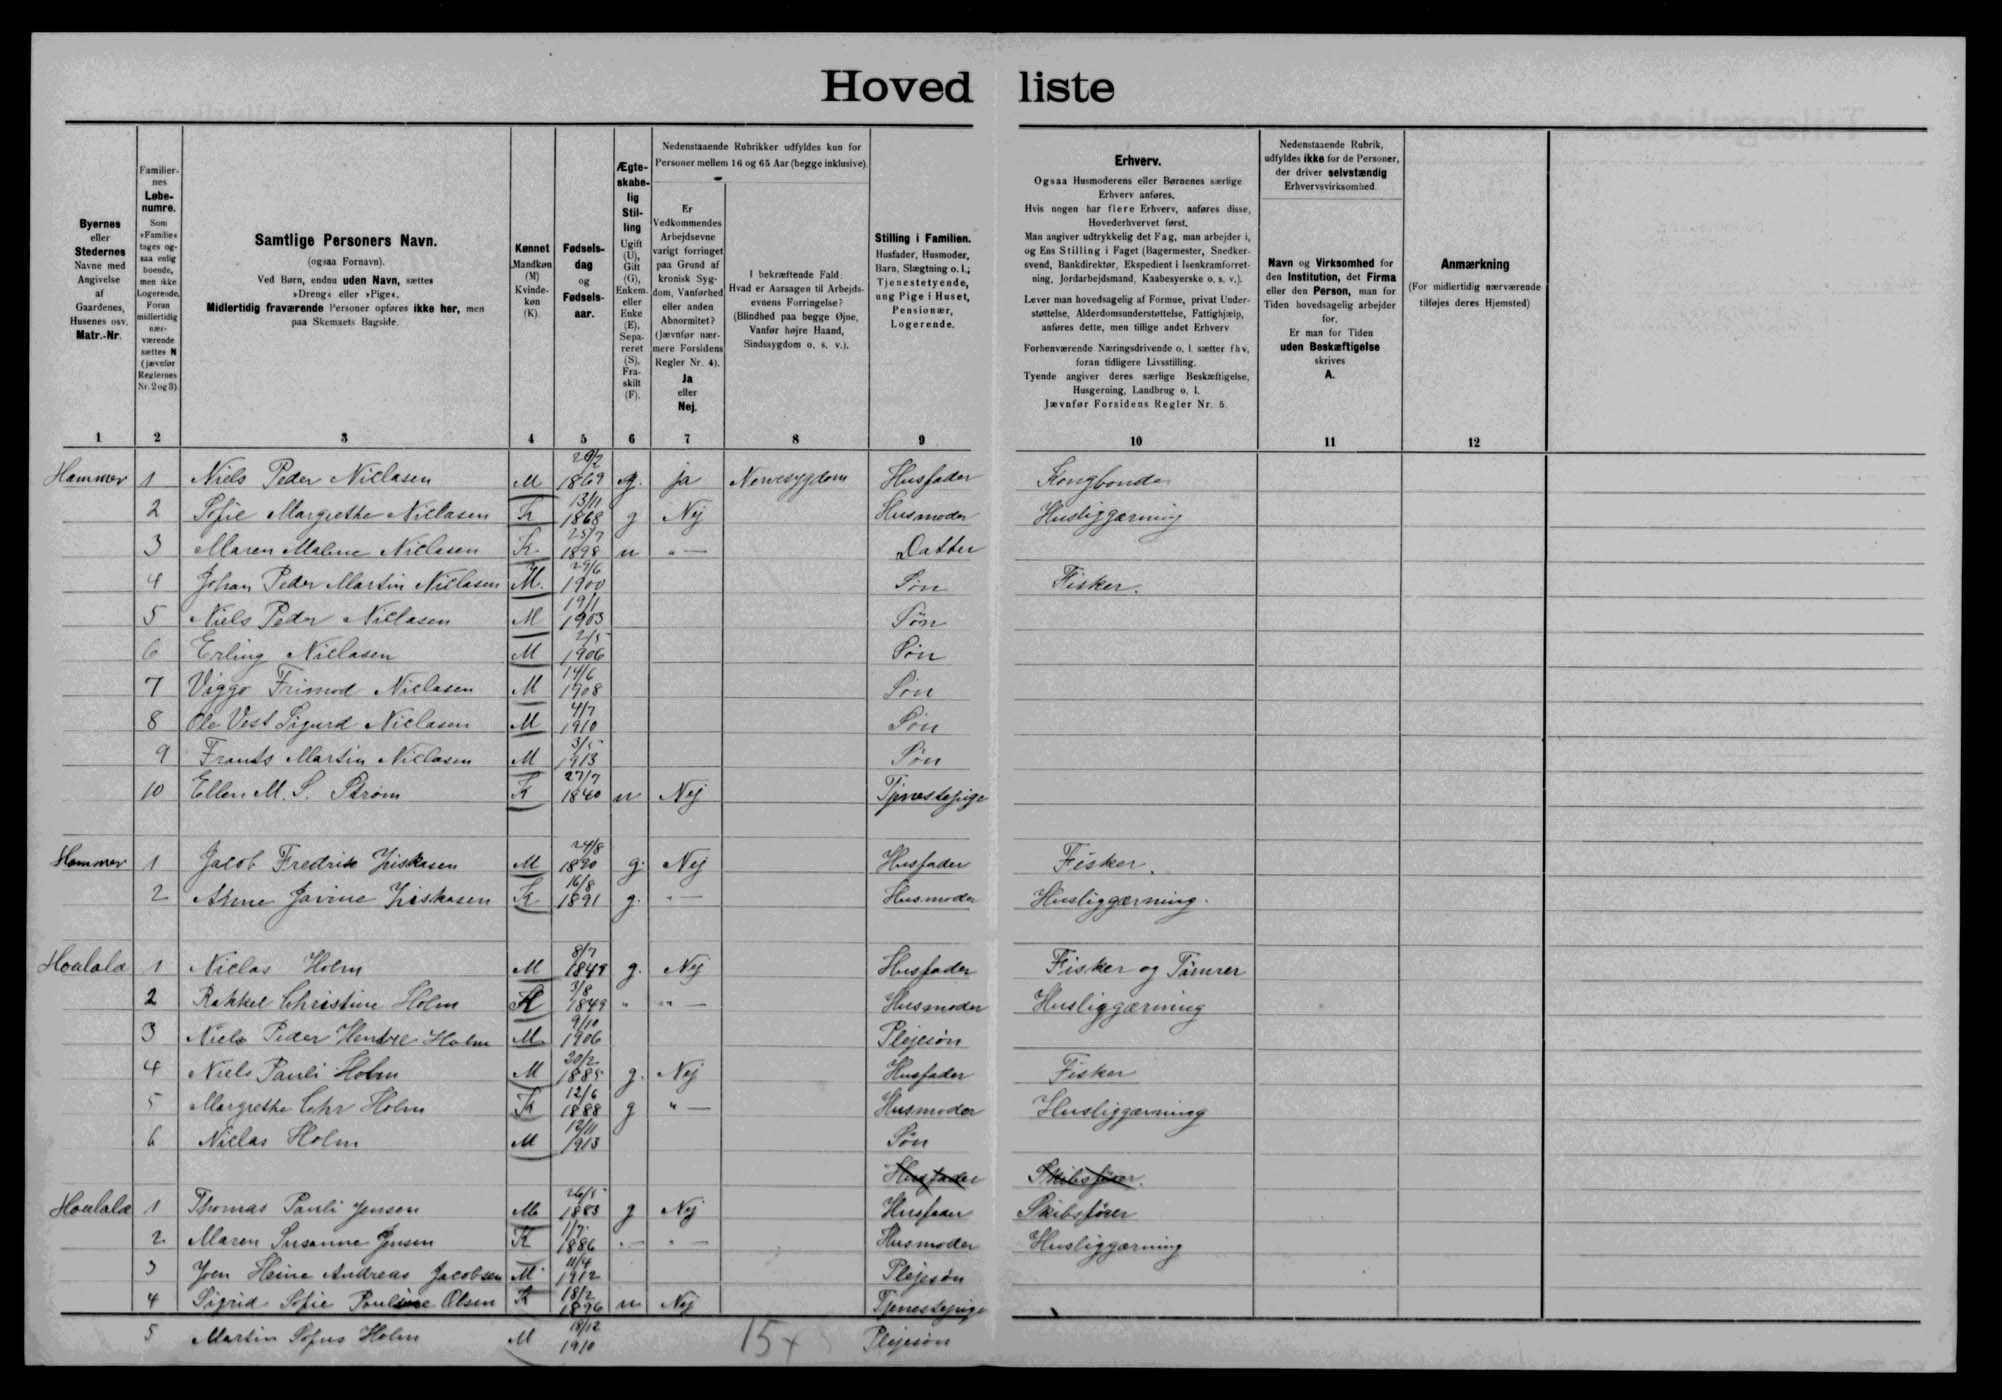 Hovedliste
Byernes eller Stedernes Navne med Angivelse af Gaardenes, Husenes osv. Matr.-Nr.
Familiernes Løbenumre. Som »Familie« tages ogsaa enlig boende, men ikke Logerende. Foran midlertidig nærværende sættes N (jævnfør Reglernes Nr. 2 og 3).
Samtlige Personers Navn. (ogsaa Fornavn). Ved Børn, endnu uden Navn, sættes »Dreng« eller »Pige«. Midlertidig fraværende Personer opføres ikke her, men paa Skemaets Bagside.
Kønnet Mandkøn (M) Kvindekøn (K).
Fødselsdag og Fødselsaar.
Ægteskabelig Stilling Ugift (U), Gift (G), Enkem. eller Enke (E), Separeret (S), Fraskilt (F).
Nedenstaaende Rubrikker udfyldes kun for Personer mellem 16 og 65 Aar (begge inklusive).
Er Vedkommendes Arbejdsevne varigt forringet paa Grund af kronisk Sygdom, Vanførhed eller anden Abnormitet? (Jævnfør nærmere Forsidens Regler Nr. 4). Ja eller Nej.
I bekræftende Fald: Hvad er Aarsagen til Arbejdsevnens Forringelse? (Blindhed paa begge Øjne, Vanfør højre Haand, Sindssygdom o. s. v.).
Stilling i Familien. Husfader, Husmoder, Barn, Slægtning o. l.; Tjenestetyende, ung Pige i Huset, Pensionær, Logerende.
Erhverv.
Ogsaa Husmoderens eller Børnenes særlige Erhverv anføres.
Hvis nogen har flere Erhverv, anføres disse, Hovederhvervet først.
Man angiver udtrykkelig det Fag, man arbejder i, og Ens Stilling i Faget (Bagermester, Snedkersvend, Bankdirektør, Ekspedient i Isenkramforretning, Jordarbejdsmand, Kaabesyerske o. s. v.).
Lever man hovedsagelig af Formue, privat Understøttelse, Alderdomsunderstøttelse, Fattighjælp, anføres dette, men tillige andet Erhverv
Forhenværende Næringsdrivende o. l. sætter fhv. foran tidligere Livsstilling.
Tyende angiver deres særlige Beskæftigelse, Husgerning, Landbrug o. l.
Jævnfør Forsidens Regler Nr. 5.
Nedenstaaende Rubrik, udfyldes ikke for de Personer, der driver selvstændig Erhvervsvirksomhed.
Navn og Virksomhed for den Institution, det Firma eller den Person, man for Tiden hovedsagelig arbejder for.
Er man for Tiden uden Beskæftigelse skrives A.
Anmærkning (For midlertidig nærværende tilføjes deres Hjemsted)
1 2 3 4 5 6 7 8 9 10 11 12
Hammer 1 Niels Peder Niclasen M 1869 g. ja Nervesygdom Husfader Kongbonde
2 Sofie Margrethe Niclasen K 13/11 1868 g Nej Husmoder Husliggærning
3 Maren Malene Niclasen K 25/7 1898 u " — Datter
4 Johan Peder Martin Niclasen M. 29/6 1900 Søn Fisker.
5 Niels Peder Niclasen M 19/1 1903 Søn
6 Erling Niclasen M 2/5 1906 Søn
7 Viggo Frimod Niclasen M 14/6 1908 Søn
8 Ole Vest Sigurd Niclasen M 4/7 1910 Søn
9 Frants Martin Niclasen M 3/5 1913 Søn
10 Ellen M. S. Strøm K 27/7 1840 u Nej Tjenestepige
Hammer 1 Jacob Fredrik Ziskasen M 24/8 1890 g. Nej Husfader Fisker.
2 Anne Javine Ziskasen K 16/8 1891 g. " — Husmoder Husliggærning.
Hoalala 1 Niclas Holm M 8/7 1849 g. Nej Husfader Fisker og Tømrer
2 Rakkel Christine Holm K 3/8 1849 " " — Husmoder Husliggærning
3 Niels Peder Holm M 9/10 1906 Plejesøn
4 Niels Pauli Holm M 20/2 1885 g. Nej Husfader Fisker
5 Margrethe Chr Holm K 12/6 1888 g " — Husmoder Husliggærning
6 Niclas Holm M 12/11 1913 Søn
Husfader Skibsfører.
Hoalala 1 Thomas Pauli Jensen M 26/5 1883 g Nej Husfader Skibsfører
2 Maren Susanne Jensen K 1886 " — " — Husmoder Husliggærning
3 Joen Heine Andreas Jacobsen M 11/4 1912 Plejesøn
4 Sigrid Sofie Pouline Olsen K 18/2 1896 u Nej Tjenestepige
5 Martin Sofus Holm M 18/12 1910 15+ Plejesøn